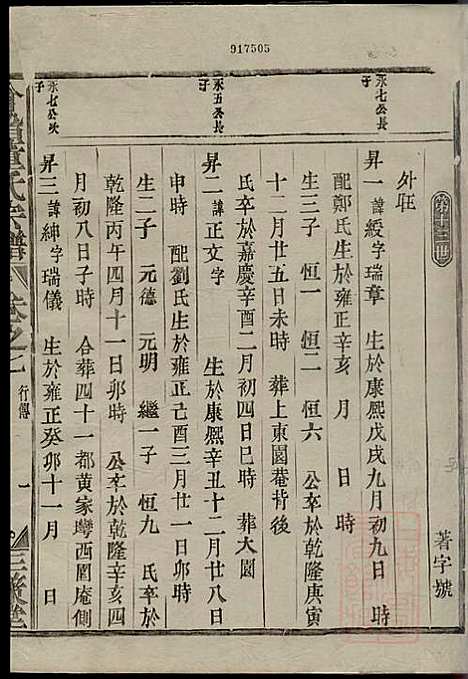 917505
永七公長子
永五公長子
永七公次子
外旺
昇一諱綬字瑞章 生於康熙戊戌九月初九日 時
配鄭氏生於雍正辛亥 月 日 時
生三子 恒一 恒二 恒六 公卒於乾隆庚寅
十二月廿五日未時 葬上東園菴背後
氏卒於嘉慶辛酉二月初四日巳時 葬大園
昇二諱正文字 生於康熙辛丑十二月廿八日
申時 配劉氏生於雍正己酉三月廿一日卯時
生二子 元德 元明 繼一子 恒九 氏卒於
乾隆丙午四月十一日卯時 公卒於乾隆辛亥四
月初八日子時 合葬四十一都黃家塆西園庵側
昇三諱紳字瑞儀 生於雍正癸卯十一月 日
著字號
氏宗譜
卷之七
行傳
一
三策堂